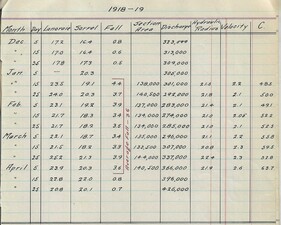 1918-19
Month Day Lancret Sorrel Fall Section Area Discharge Hydraulic Radius Velocity C
Dec. 5 17.2 16.4 0.8
" 15 17.0 16.4 0.6 313,000
" 25 17.8 17.3 0.5 309,000
Jan. 5 — 20.3 305,000
" 15 23.5 19.1 138,000 301,000 21.5 2.2
" 25 24.0 20.3 3.7 140,500 292,000 21.8 2.1 500
Feb 5 23.1 19.2 3.9 137,000 283,000 21.4 2.1 491
" 15 21.7 18.3 3.4 134,000 274,000 21.0 2.05
" 25 21.7 18.2 3.5 134,000 285,000 21.0 2.1 503
March 5 22.1 18.7 3.4 135,000 298,000 21.1 2.2
" 15 21.5 18.2 3.3 132,500 307,000 20.8 2.3
" 25 25.2 21.3 3.9 144,000 337,000 2.3
April 5 23.9 20.3 3.6 140,500 366,000 21.9 2.6
" 15 22.8 22.0 0.8 396,000
" 25 20.8 20.1 0.7 426,000